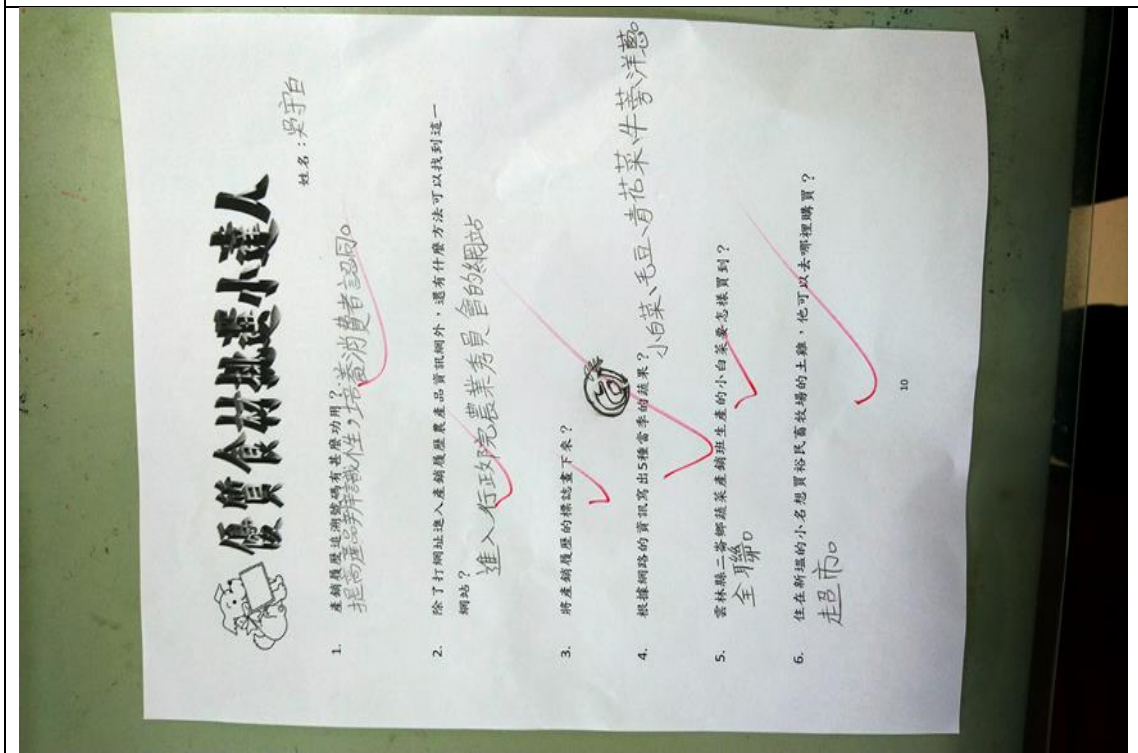 優質食材挑選小達人
姓名：吳守白
1. 產銷履歷追溯號碼有甚麼功用？
提高產品辨識性，培養消費者認同。
2. 除了打網址進入產銷履歷農產品資訊網外，還有什麼方法可以找到這一
網站？
進入行政院農業秀員會的網站
3. 將產銷履歷的標誌畫下來？
4. 根據網路的資訊寫出5種當季的蔬果？
小白菜、毛豆、青花菜、牛蒡、洋蔥。
5. 雲林縣二崙鄉蔬菜產銷班生產的小白菜要怎樣買到？
全聯。
6. 住在新塭的小名想買裕民畜牧場的土雞，他可以去哪裡購買？
超市。
10